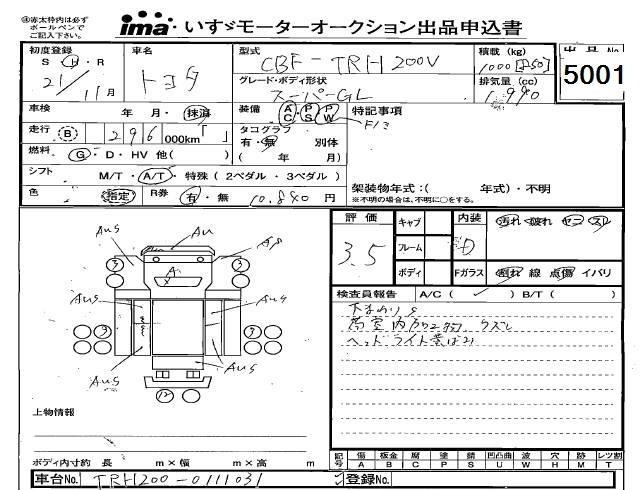 ④赤太枠内は必ず
ボールペンで
ご記入下さい。
ima いすゞモーターオークション出品申込書
初度登録 車名 型式 積載(kg) 出品No
S・H・R トヨタ CBF-TRH200V 1000[850] 5001
21/11月 グレード・ボディ形状 排気量(cc)
スーパーGL 1,990
車検 年・月・抹消 装備 A/C P/S P/W 特記事項
走行 B 296 000km「 」 タコグラフ
有・無 別体
燃料 G・D・HV 他( ) ( 年 月)
シフト M/T・A/T・特殊(2ペダル・3ペダル)
架装物年式:( 年式)・不明
色 指定 R券 有・無 10.840 円 ※不明の場合は、不明に○をする。
評価 キャブ 内装 汚れ 破れ ヤニ スレ
3.5 フレーム D
ボディ Fガラス 割れ 線 点傷 イバリ
検査員報告 A/C( ✓ ) B/T( )
下まわりS
ヘッドライト黄ばみ
AU
A8
3 2
A
AUS AUS
AUS AUS
12
上物情報
ボディ内寸約 長 m×幅 m×高 m
記号 傷 板金 腐 塗 錆 凹凸曲 波 穴 跡 レツ割
A B C P S U W H M T
車台No. TRH200-0111031 登録No.